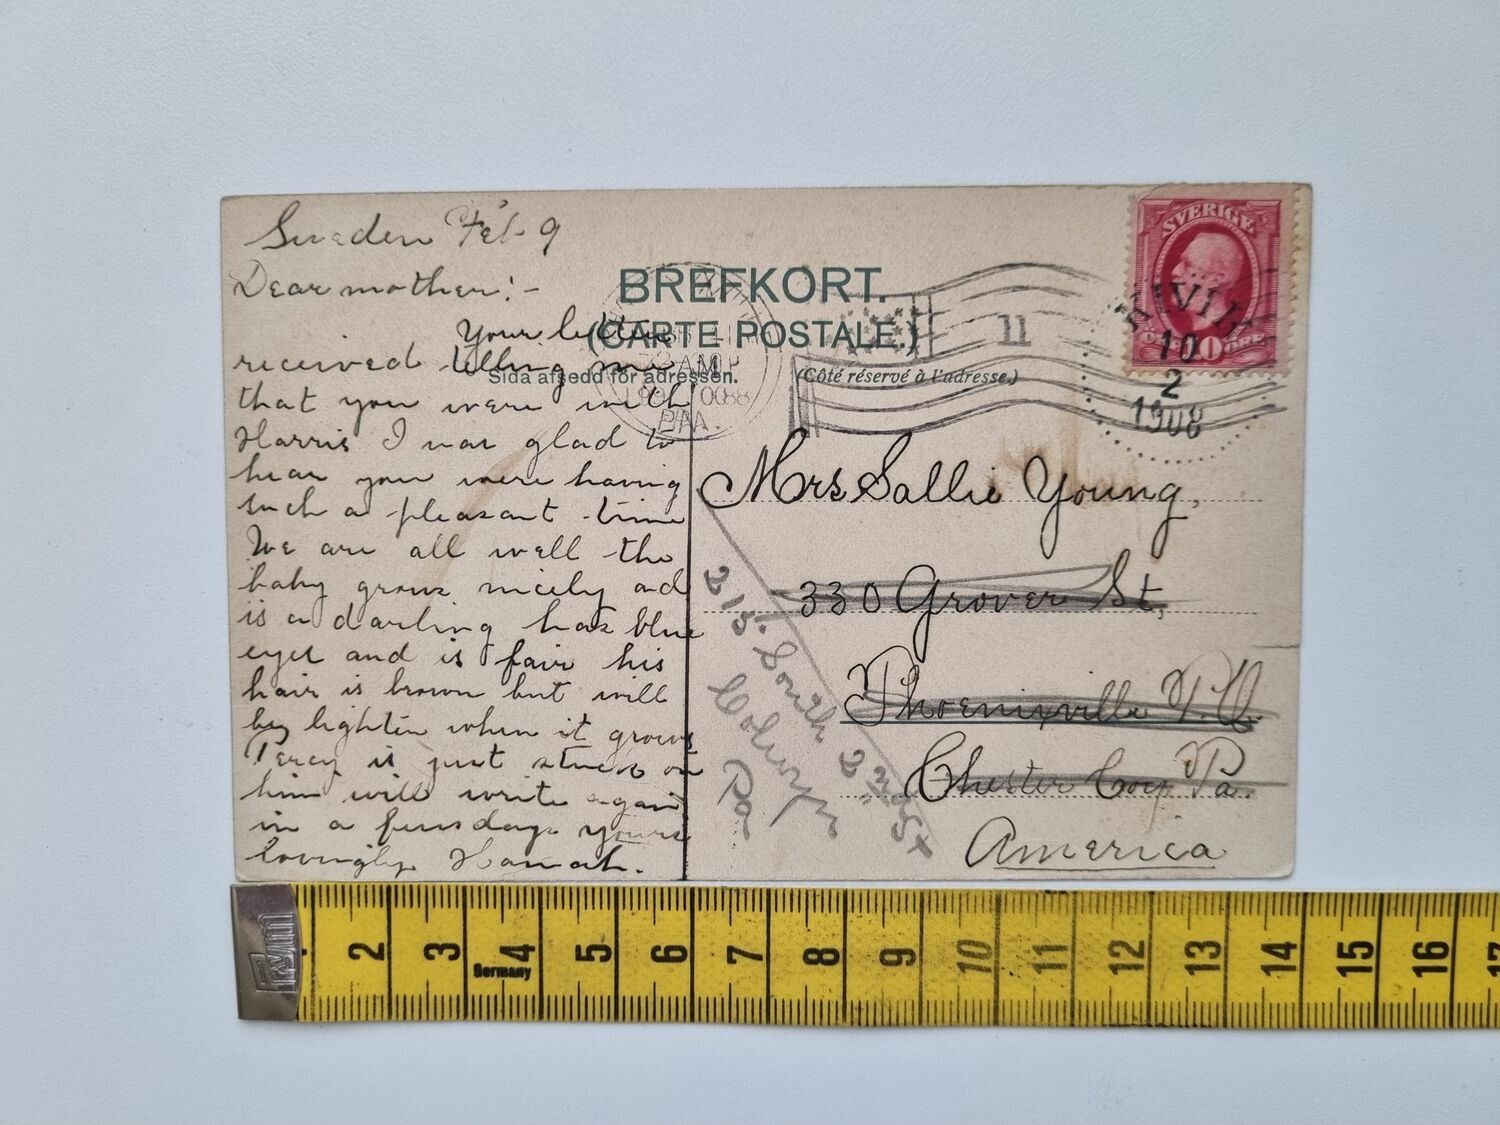 Sweden Feb 9
Dear mother:-
Your letter
received telling me
that you were with
Harris I was glad to
hear you were having
such a pleasant time
We are all well the
baby grows nicely and
is a darling has blue
eyes and is fair his
hair is brown but will
be lighten when it grows
Percy is just stuck on
him will write again
in a few days yours
lovingly Hannah.
BREFKORT.
(CARTE POSTALE.)
Sida afsedd för adressen.
(Côté réservé à l'adresse.)
SVERIGE
10
ÖRE
10
2
1908
11
AM
PA.
Mrs Sallie Young,
330 Grover St,
Phoenixville P.O.
Chester Co, Pa.
America
215 South 2nd St
Pa
Prym
Germany
2 3 4 5 6 7 8 9 10 11 12 13 14 15 16 17